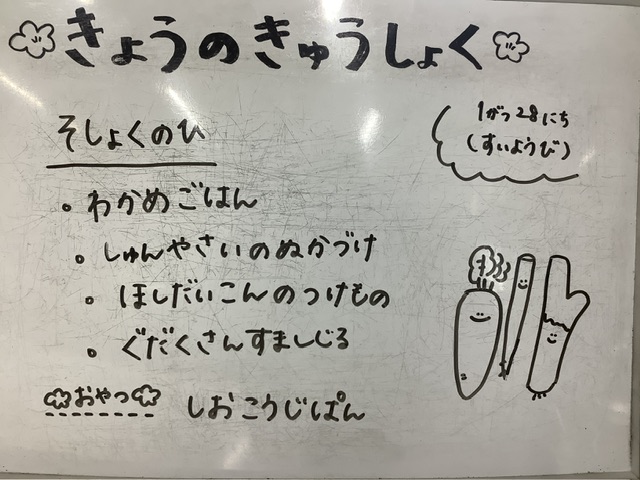 きょうのきゅうしょく
1がつ28にち
(すいようび)
そしょくのひ
・わかめごはん
・しゅんやさいのぬかづけ
・ほしだいこんのつけもの
・ぐだくさんすましじる
おやつ しおこうじぱん